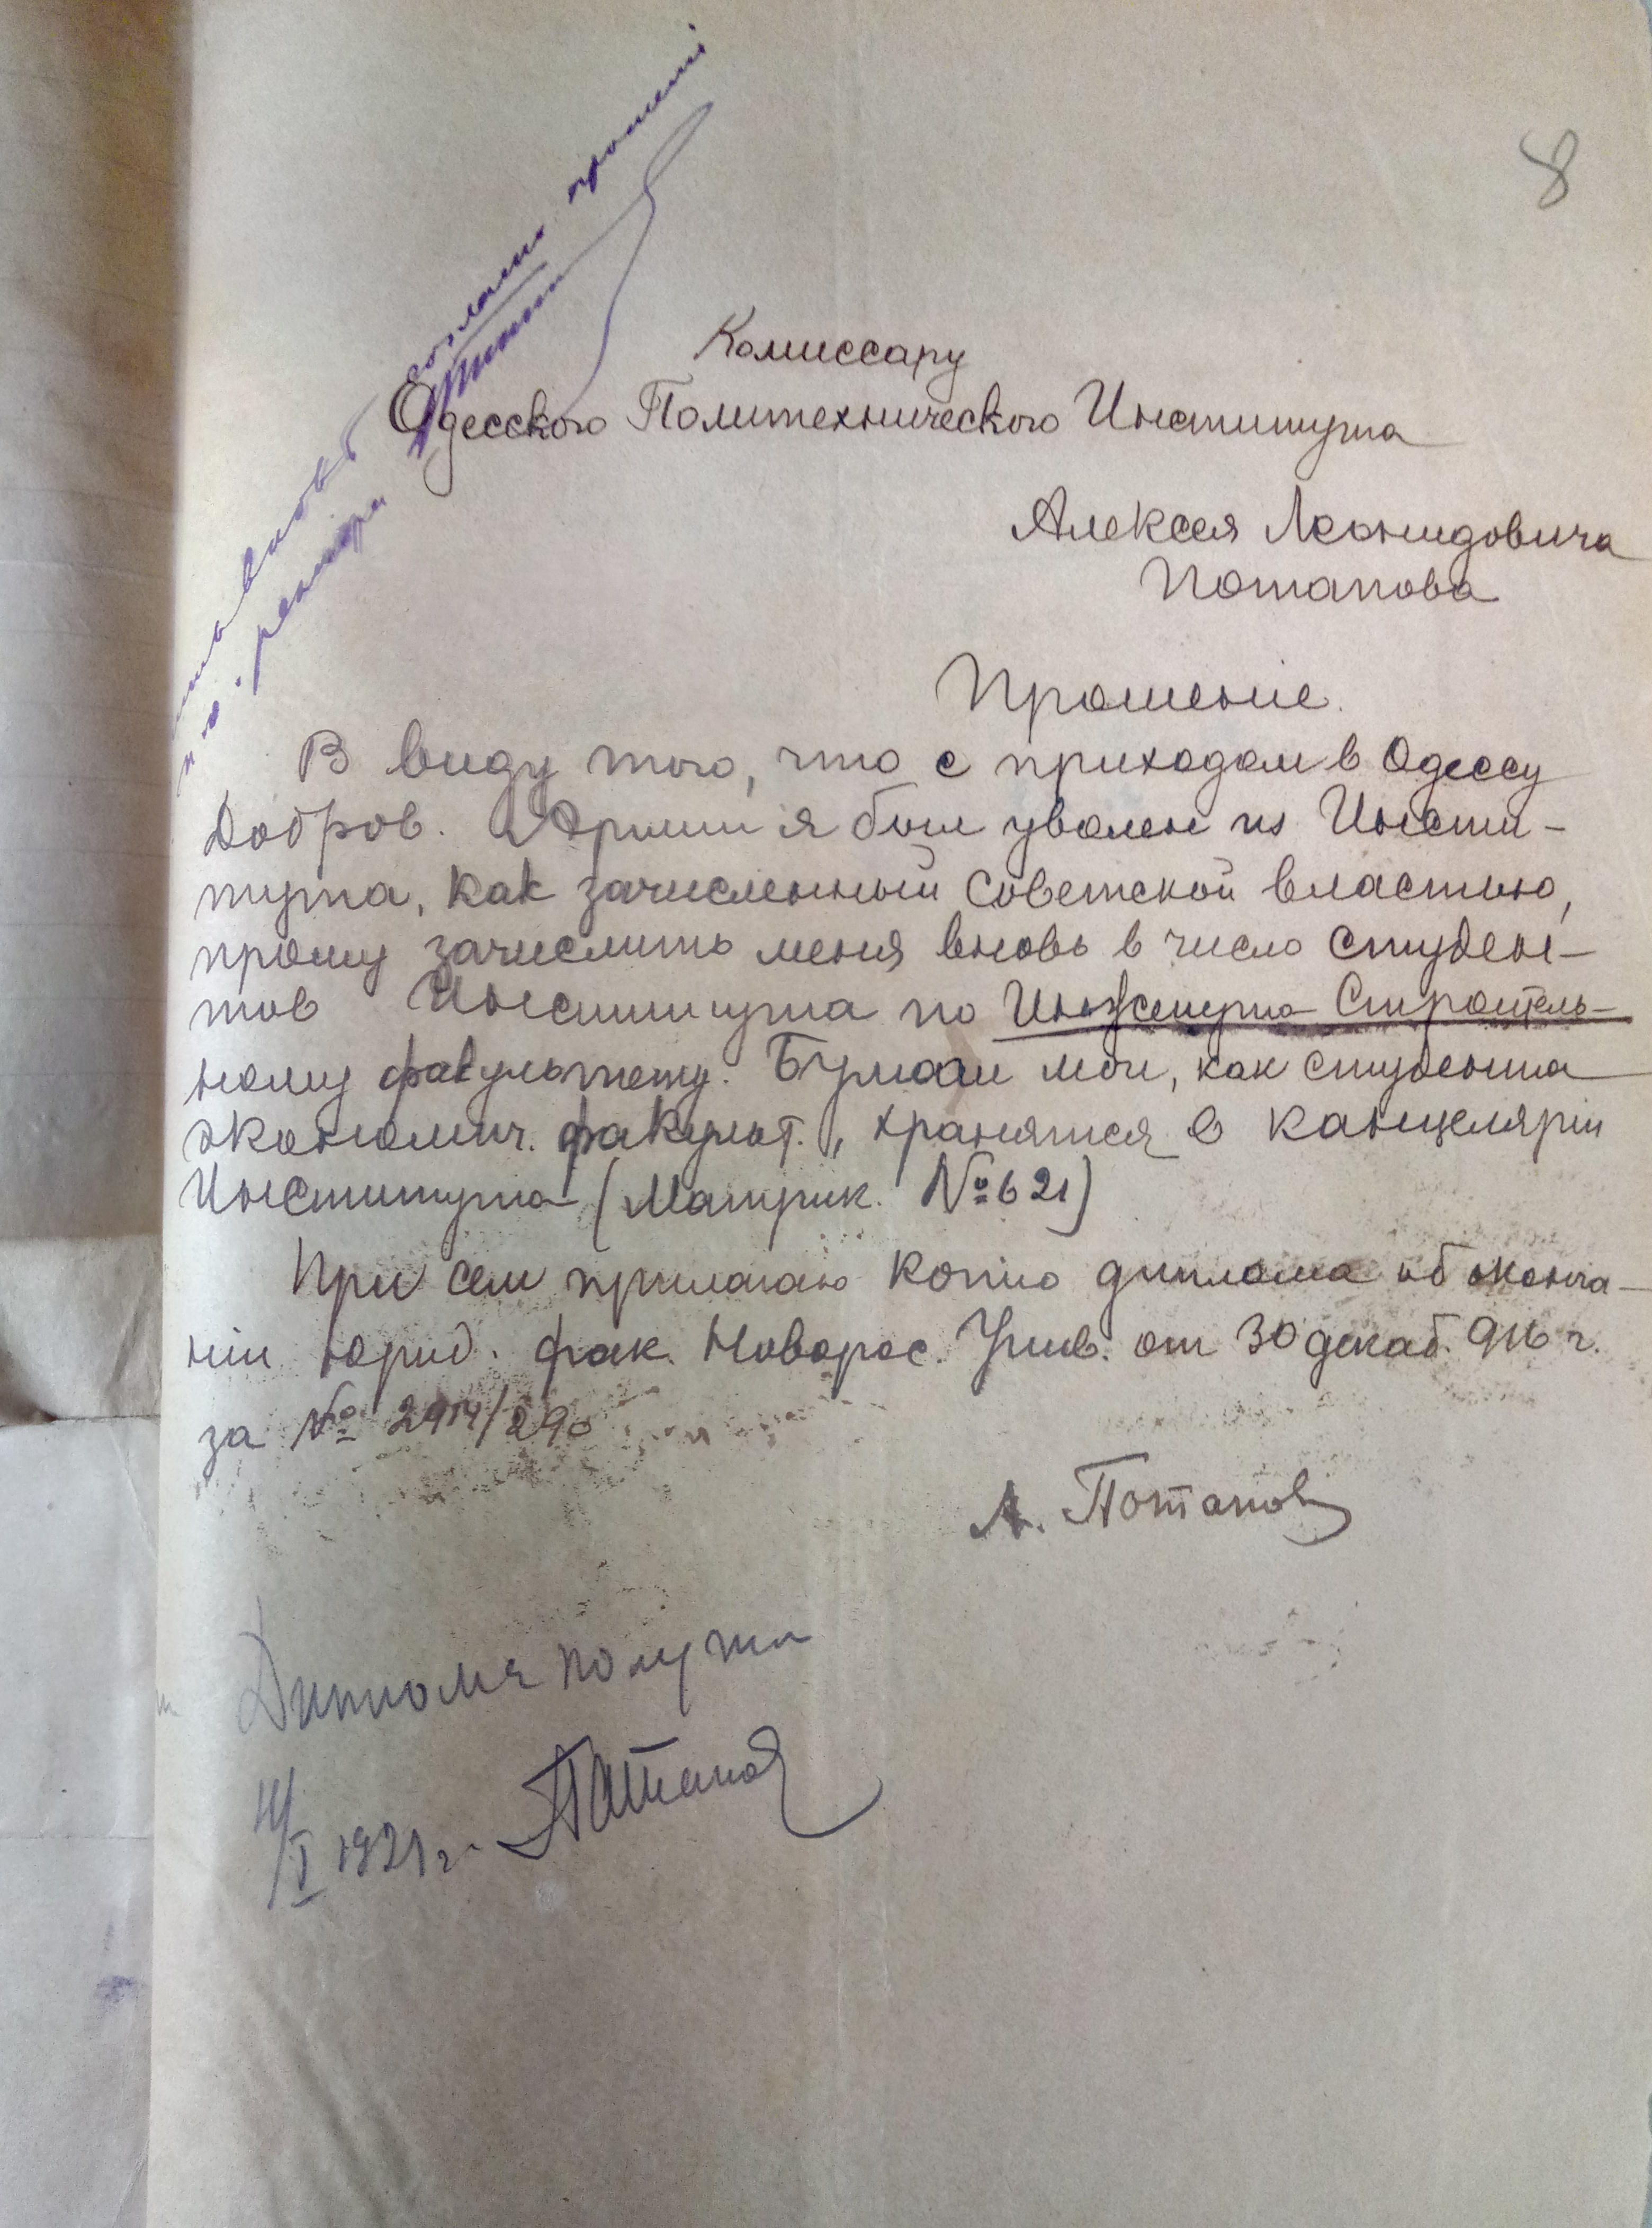 8
вновь согласно прошенію
ректора
Комиссару
Одесского Политехнического Института
Алексея Леонидовича
Потапова
Прошеніе.
В виду того, что с приходом в Одессу
Добров. Арміи я был уволен из Инсти-
тута, как зачисленный советской властью,
прошу зачислить меня вновь в число студен-
тов Института по Инженерно-Строитель-
ному факультету. Бумаги мои, как студента
экономич. факульт., хранятся в канцеляріи
Института (Матрик. № 621)
При сем прилагаю копію диплома об оконча-
ніи юрид. фак. Новорос. Унив. от 30 декаб. 916 г.
за № 2914/290
А. Потапов
Диплом получил
1921 г. Потапов